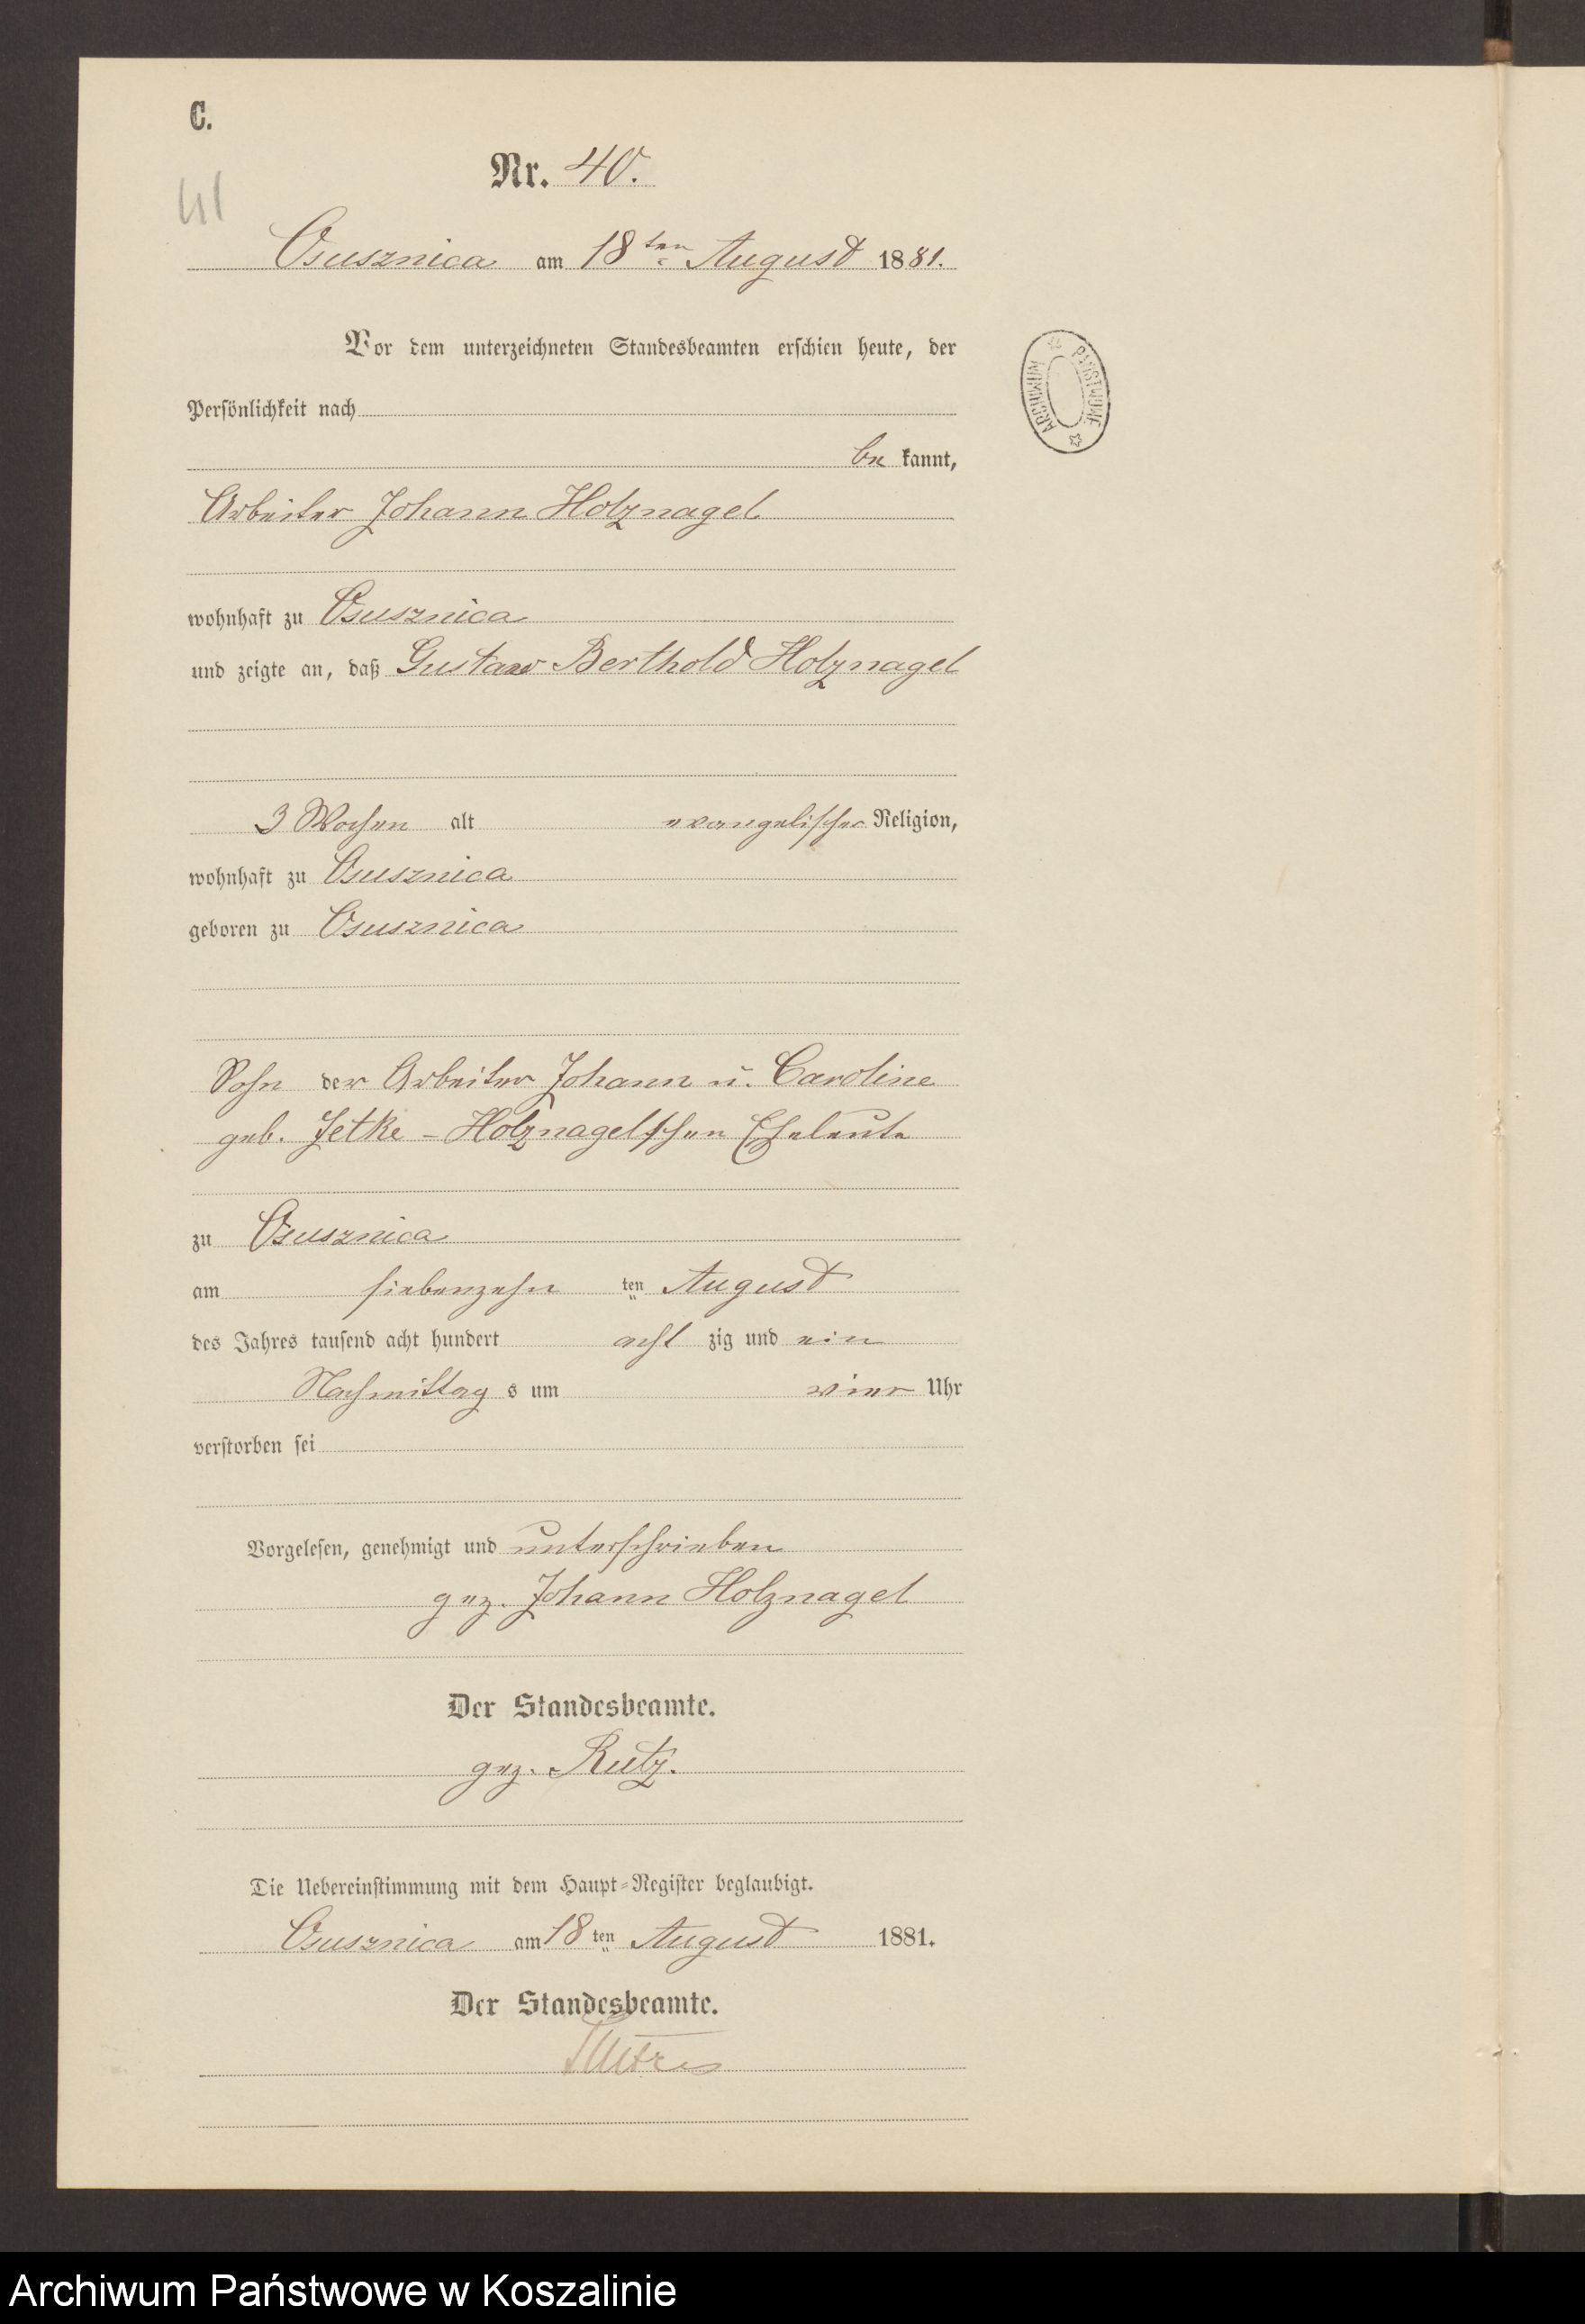 C.
Nr. 40.
41
Osusznica am 18ten August 1881.
Vor dem unterzeichneten Standesbeamten erschien heute, der
Persönlichkeit nach
be kannt,
Arbeiter Johann Holznagel
wohnhaft zu Osusznica
und zeigte an, daß Gustav Berthold Holznagel
3 Wochen alt evangelischer Religion,
wohnhaft zu Osusznica
geboren zu Osusznica
Sohn der Arbeiter Johann u. Caroline
geb. Jetke - Holznagelschen Eheleute
zu Osusznica
am siebenzehn ten August
des Jahres tausend acht hundert acht zig und ein
Nachmittag s um vier Uhr
verstorben sei
Vorgelesen, genehmigt und unterschrieben
gez. Johann Holznagel
Der Standesbeamte.
gez. Rutz.
Die Uebereinstimmung mit dem Haupt-Register beglaubigt.
Osusznica am 18 ten August 1881.
Der Standesbeamte.
ARCHIWUM PAŃSTWOWE
Archiwum Państwowe w Koszalinie